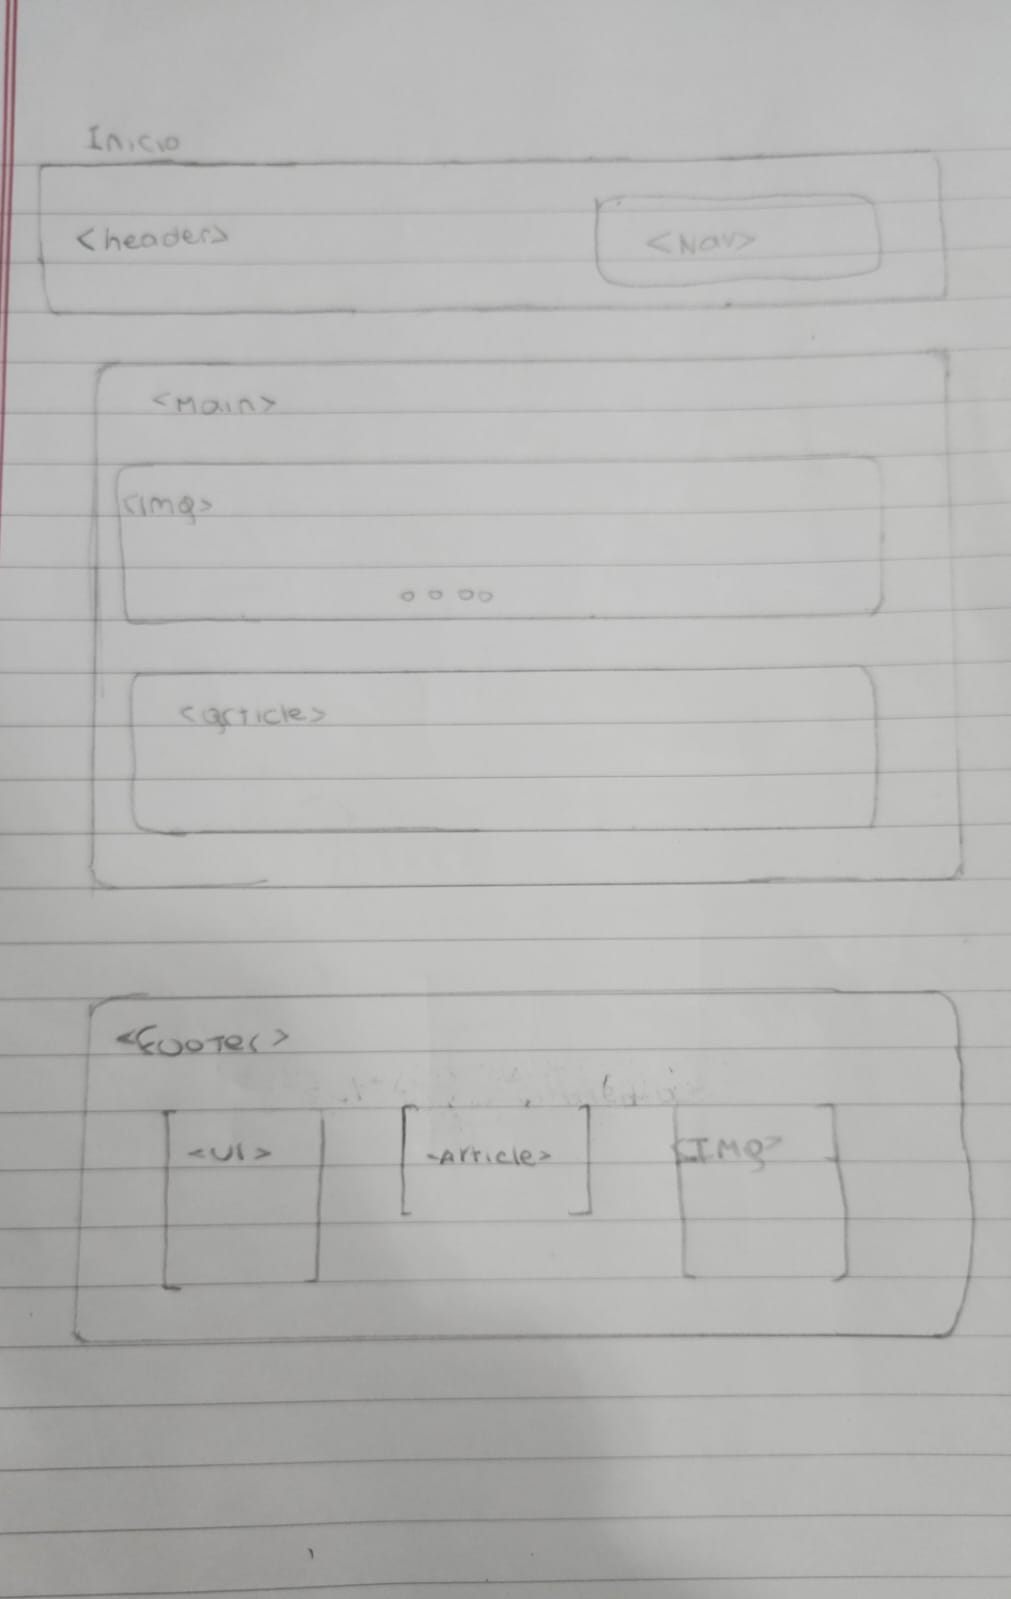 Inicio
<header>
<Nav>
<Main>
<Img>
<article>
<footer>
<Ul>
<Article>
<IMg>